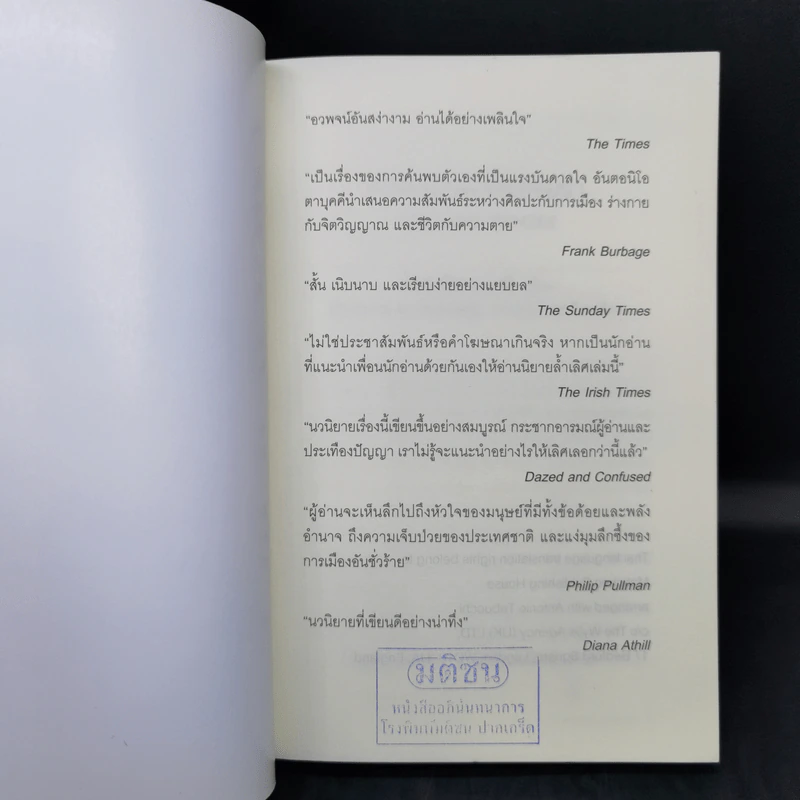 "อวพจน์อันสง่างาม อ่านได้อย่างเพลินใจ"
The Times
"เป็นเรื่องของการค้นพบตัวเองที่เป็นแรงบันดาลใจ อันตอนิโอ
ตาบุคคีนำเสนอความสัมพันธ์ระหว่างศิลปะกับการเมือง ร่างกาย
กับจิตวิญญาณ และชีวิตกับความตาย"
Frank Burbage
"สั้น เนิบนาบ และเรียบง่ายอย่างแยบยล"
The Sunday Times
"ไม่ใช่ประชาสัมพันธ์หรือคำโฆษณาเกินจริง หากเป็นนักอ่าน
ที่แนะนำเพื่อนนักอ่านด้วยกันเองให้อ่านนิยายล้ำเลิศเล่มนี้"
The Irish Times
"นวนิยายเรื่องนี้เขียนขึ้นอย่างสมบูรณ์ กระชากอารมณ์ผู้อ่านและ
ประเทืองปัญญา เราไม่รู้จะแนะนำอย่างไรให้เลิศเลอกว่านี้แล้ว"
Dazed and Confused
"ผู้อ่านจะเห็นลึกไปถึงหัวใจของมนุษย์ที่มีทั้งข้อด้อยและพลัง
อำนาจ ถึงความเจ็บป่วยของประเทศชาติ และแง่มุมลึกซึ้งของ
การเมืองอันชั่วร้าย"
Philip Pullman
"นวนิยายที่เขียนดีอย่างน่าทึ่ง"
Diana Athill
มติชน
หนังสืออภินันทนาการ
โรงพิมพ์มติชน ปากเกร็ด